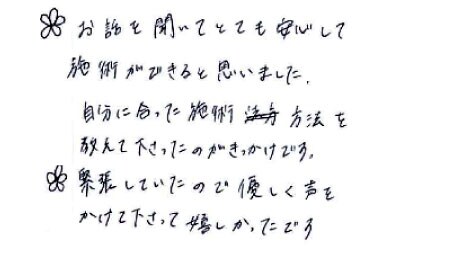 お話を聞いてとても安心して
施術ができると思いました。
自分に合った施術 方法を
教えて下さったのがきっかけです。
緊張していたので優しく声を
かけて下さって嬉しかったです